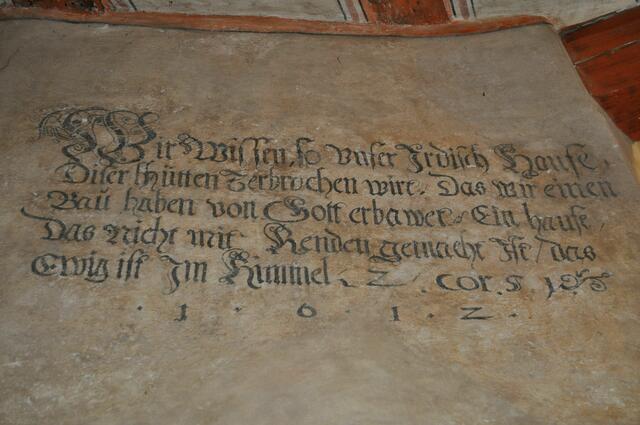 Wir Wissen, so vnser Irdisch Hause,
Diser hütten Zerbrochen wirt. Das wir einen
Bau haben von Gott erbawet. Ein hauß,
Das nicht mit Henden gemacht Ist, das
Ewig ist Im Himmel. 2. Cor. 5.
· 1 · 6 · 1 · 2 ·